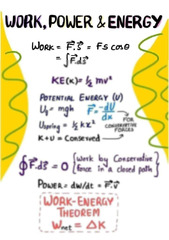 WORK, POWER & ENERGY
WORK = F⃗.S⃗ = FS cosθ
= ∫F⃗.ds⃗
KE(K) = ½ mv²
POTENTIAL ENERGY (U)
Ug = mgh F = -dU/dx → FOR CONSERVATIVE FORCES
Uspring = ½ kx²
K + U = Conserved
∮F⃗.ds⃗ = 0 {Work by Conservative force in a closed path}
POWER = dW/dt = F⃗.v⃗
WORK-ENERGY
THEOREM
Wnet = ΔK